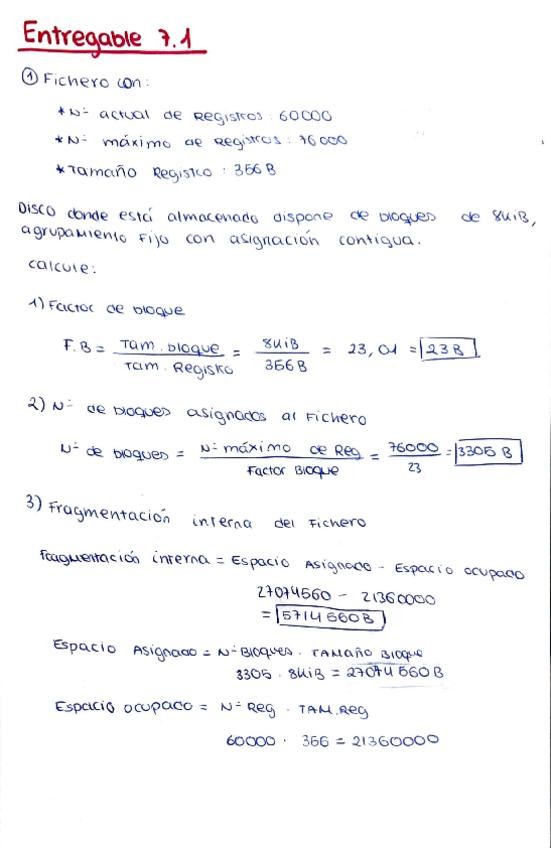 Entregable 7.1
① Fichero con:
* Nº actual de Registros: 60000
* Nº máximo de Registros: 76000
* Tamaño Registro: 356 B
Disco donde está almacenado dispone de bloques de 8KiB,
agrupamiento Fijo con asignación contigua.
calcule:
1) Factor de bloque
F.B = Tam. bloque / Tam. Registro = 8KiB / 356 B = 23,01 = 23 B
2) Nº de bloques asignados al Fichero
Nº de bloques = Nº máximo de Reg / Factor Bloque = 76000 / 23 = 3305 B
3) Fragmentación interna del Fichero
Fragmentación interna = Espacio Asignado - Espacio ocupado
27074560 - 21360000
= 5714560 B
Espacio Asignado = Nº Bloques . Tamaño Bloque
3305 . 8KiB = 27074560 B
Espacio ocupado = Nº Reg . TAM. Reg
60000 . 356 = 21360000